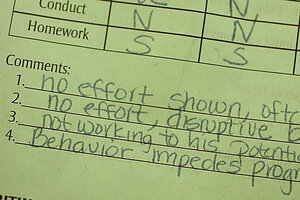 Conduct N N
Homework S S
Comments:
1. no effort shown,
2. no effort, disruptive
3. not working to his
4. Behavior impedes